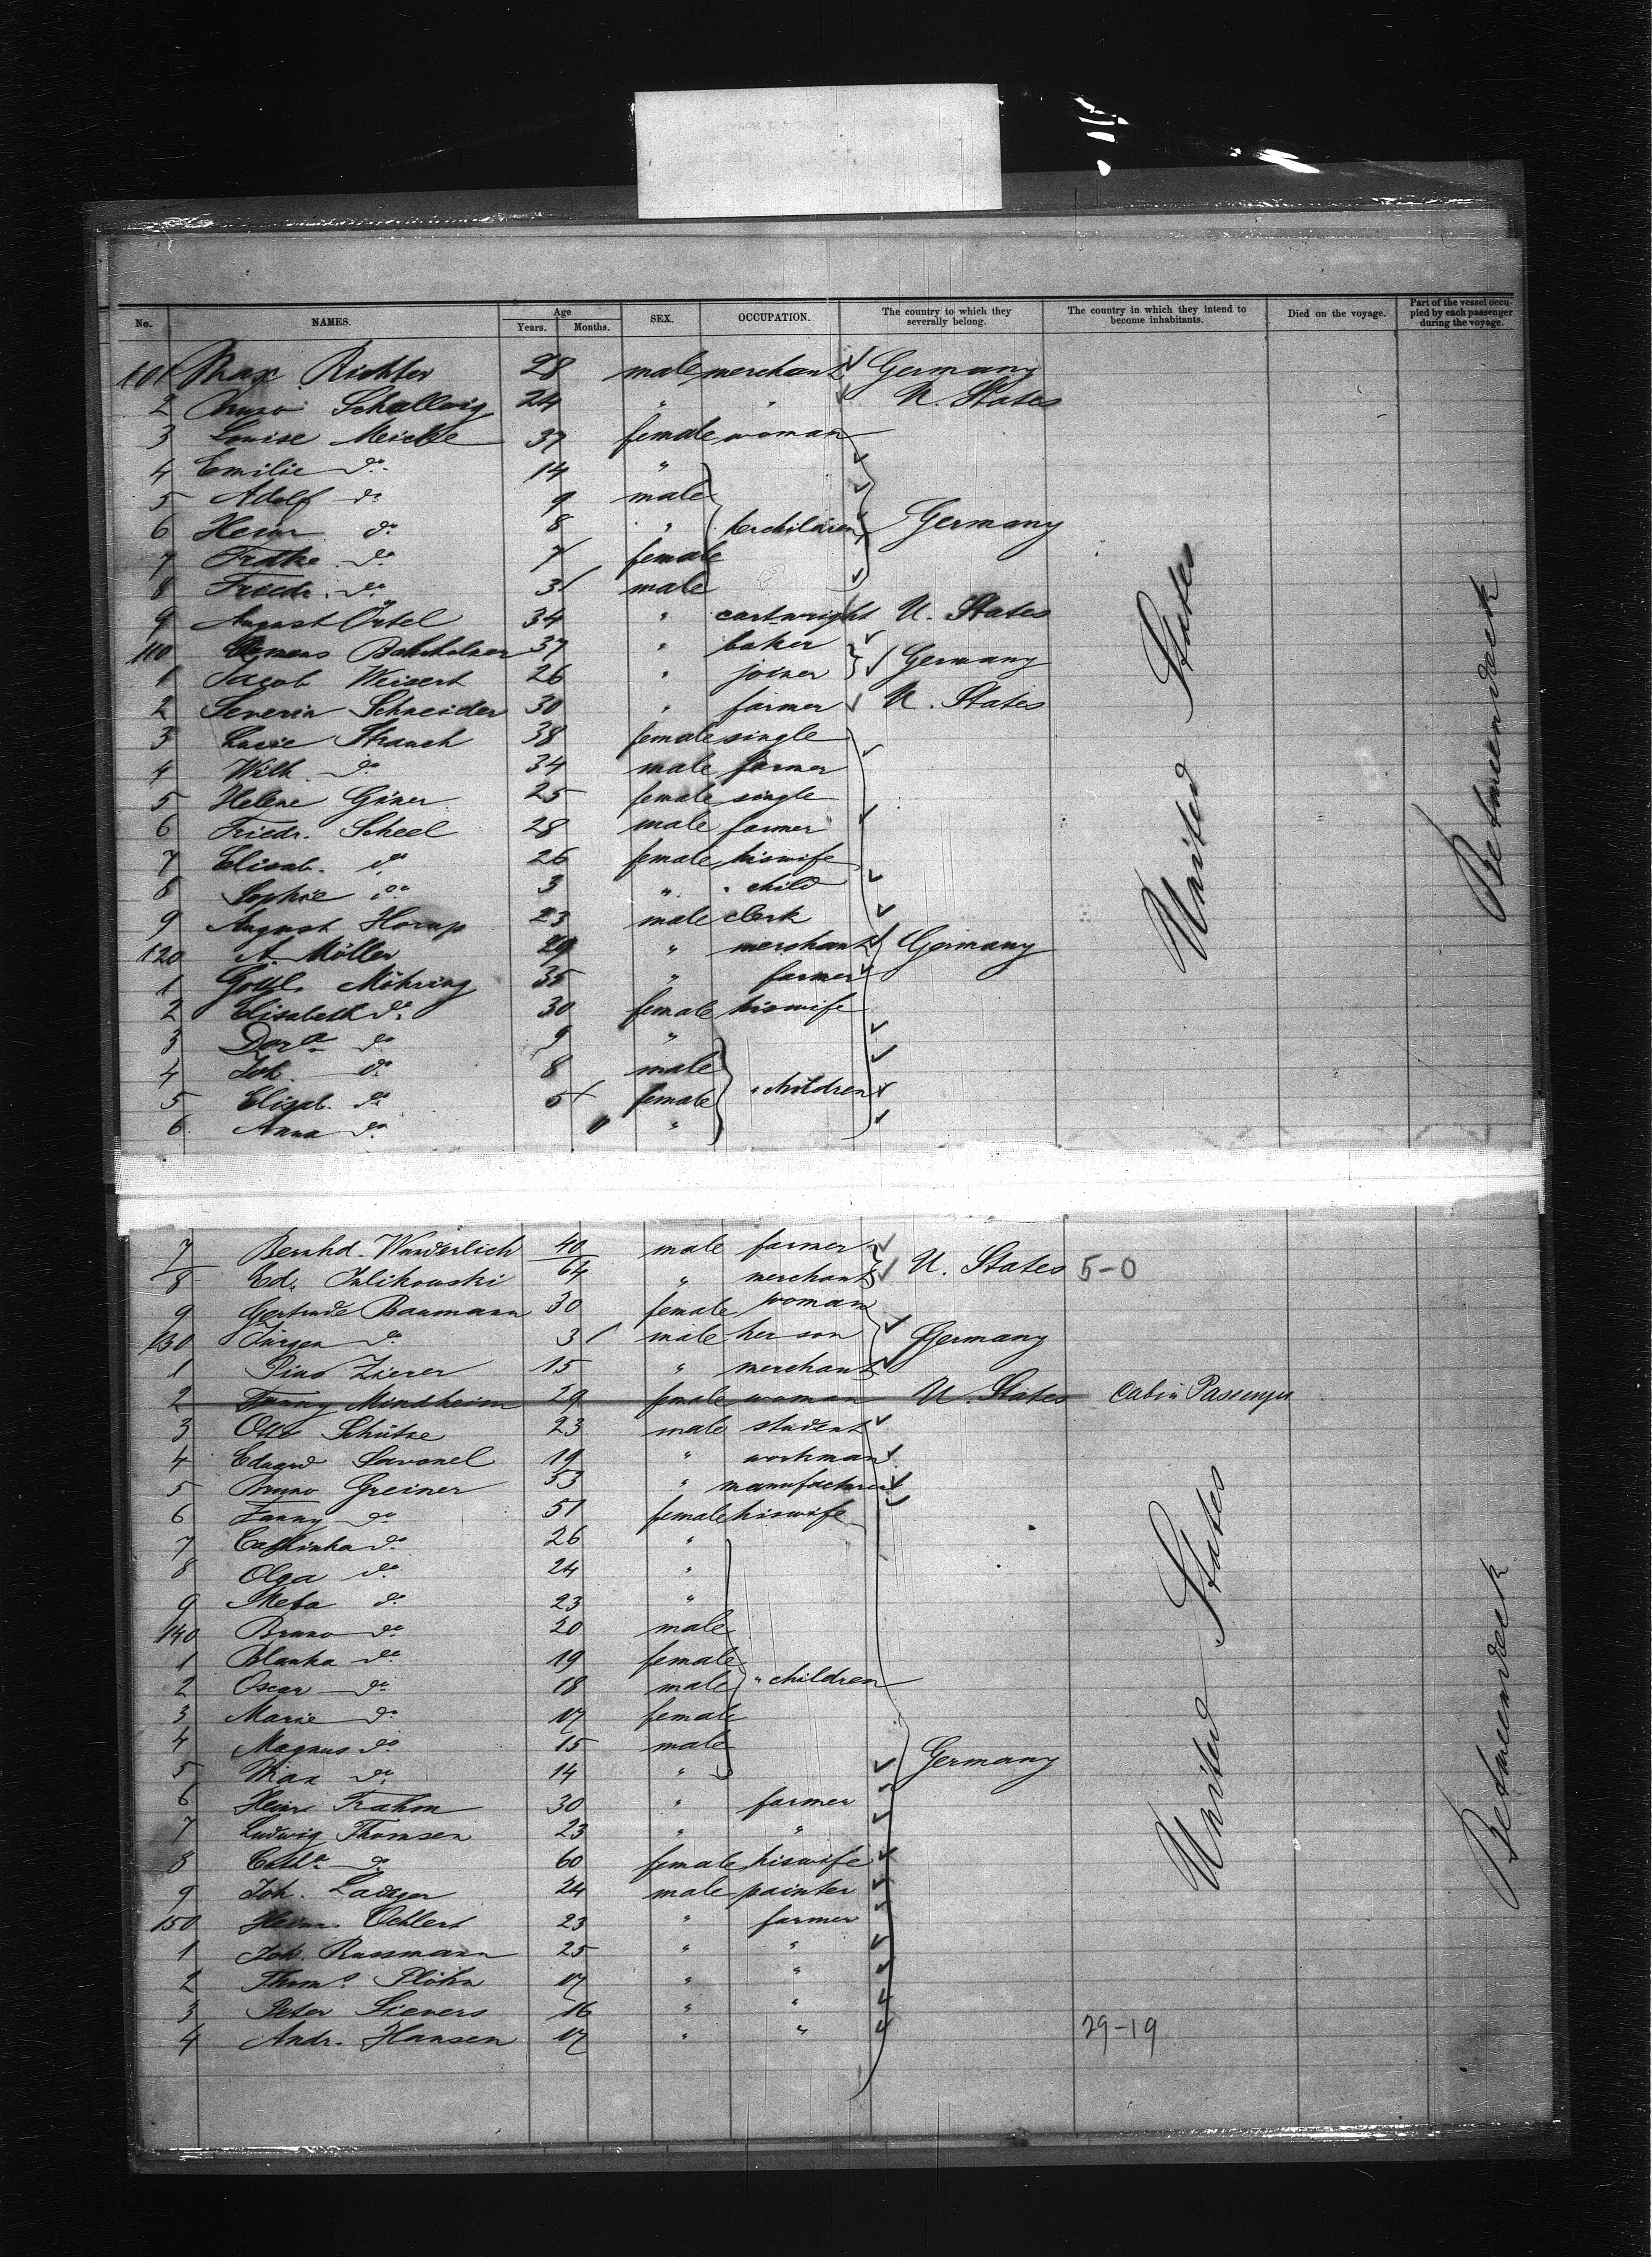 No. NAMES. Age Years. Months. SEX. OCCUPATION. The country to which they severally belong. The country in which they intend to become inhabitants. Died on the voyage. Part of the vessel occupied by each passenger during the voyage.
101 Max Richter 28 male merchant Germany
2 Schallwig 24 " " U. States
3 Louise 37 female woman
4 Emilie do 14 "
5 Adolf do 9 male
6 Heinr. do 8 " her children Germany
7 Fridke do 7 female
8 Friedr. do 3 male
9 August Örtel 34 " cartwright U. States
110 37 " baker
1 Jacob Weisert 26 " joiner Germany
2 Severin Schneider 30 " farmer U. States
3 Strauch 38 female single
4 Wilh. do 34 male farmer
5 Helene 25 female single
6 Friedr. Scheel 28 male farmer
7 Elisab. do 26 female his wife
8 Sophie do 3 " " child
9 August 23 male clerk
120 A. Möller 29 " merchant Germany
1 Gottl. Möhring 35 " farmer
2 Elisabeth do 30 female his wife
3 do 9 "
4 Joh. do 8 male
5 Elisab. do 5 female " children
6 Anna do "
United States
Between deck
7 Bernhd. Wunderlich 40 male farmer
8 Ed. 64 " merchant U. States 5-0
9 Gertrude Baumann 30 female woman
130 Jürgen do 3 male her son Germany
1 Pius Zierer 15 " merchant
2 Fanny Mindheim 29 female woman U. States Cabin Passenger
3 Otto Schütze 23 male student
4 Eduard 19 " workman
5 Bruno Greiner 53 " manufacturer
6 Fanny do 51 female his wife
7 Cathinka do 26 "
8 Olga do 24 "
9 Meta do 23 "
140 Bruno do 20 male
1 Blanka do 19 female
2 Oscar do 18 male " children
3 Marie do 17 female
4 Magnus do 15 male
5 Max do 14 " Germany
6 Heinr. Frahm 30 " farmer
7 Ludwig Thomsen 23 " "
8 Cath. do 60 female his wife
9 Joh. 24 male painter
150 Heinr. Oehlert 23 " farmer
1 Joh. Russmann 25 " "
2 Thoms. Plöhn 17 " "
3 Peter Sievers 16 " "
4 Andr. Hansen 17 " " 29-19
United States
Between deck